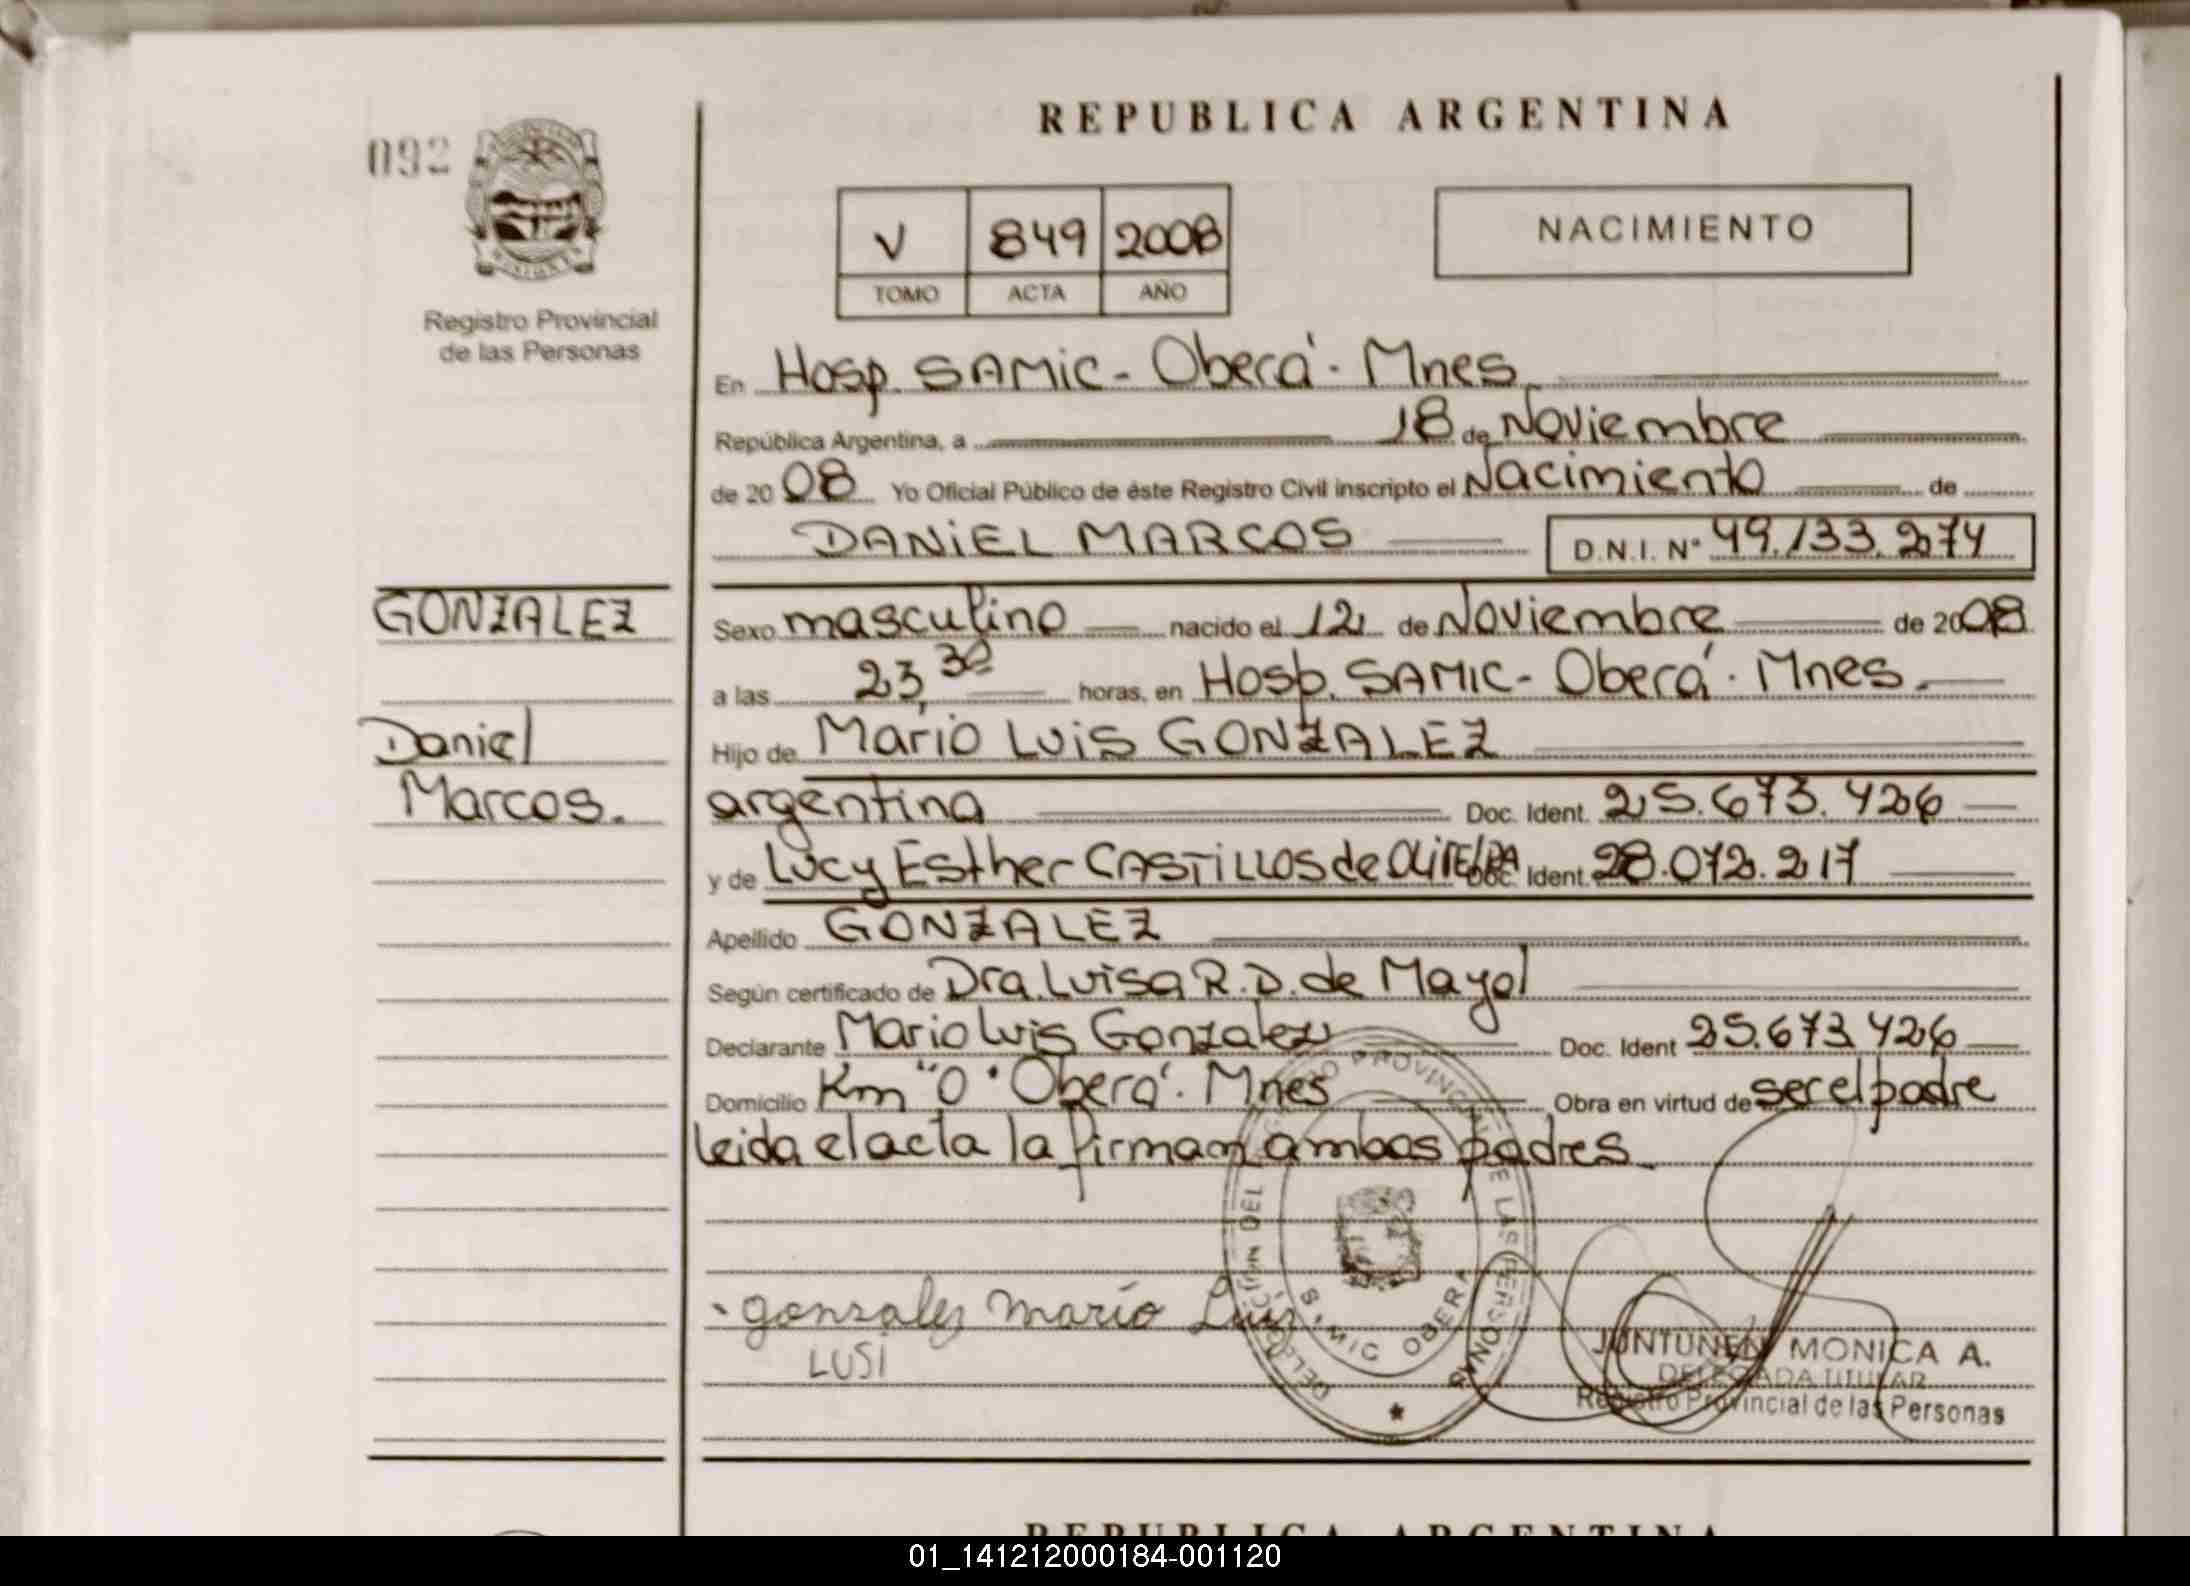 REPUBLICA ARGENTINA
092
V 849 2008
TOMO ACTA AÑO
NACIMIENTO
MISIONES
Registro Provincial
de las Personas
En Hosp. SAMIC - Oberá - Mnes
República Argentina, a 18 de Noviembre
de 2008 Yo Oficial Público de éste Registro Civil inscripto el Nacimiento de
DANIEL MARCOS D.N.I. N° 49.133.274
GONZALEZ
Sexo masculino nacido el 12 de Noviembre de 2008
a las 23,30 horas, en Hosp. SAMIC - Oberá - Mnes.
Daniel
Hijo de Mario Luis GONZALEZ
Marcos.
argentina Doc. Ident. 25.673.426
y de Lucy Esther CASTILLOS de OLIVEIRA Doc. Ident. 28.072.217
Apellido GONZALEZ
Según certificado de Dra. Luisa R.D. de Mayol
Declarante Mario Luis Gonzalez Doc. Ident 25.673.426
Domicilio Km "0" Oberá - Mnes Obra en virtud de ser el padre
leida el acta la firman ambos padres
DELEGACION DEL REGISTRO PROVINCIAL DE LAS PERSONAS
SAMIC OBERA
gonzalez mario Luis
LUSI
JUNTUNEN MONICA A.
DELEGADA TITULAR
Registro Provincial de las Personas
REPUBLICA ARGENTINA
01_141212000184-001120